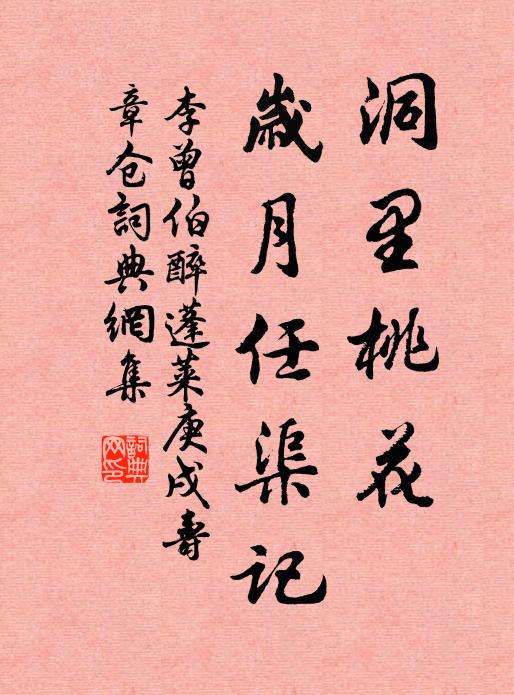 洞里桃花
歲月任渠記
李曾伯醉蓬萊庚戌壽
章仓詞典網集
詞典網印